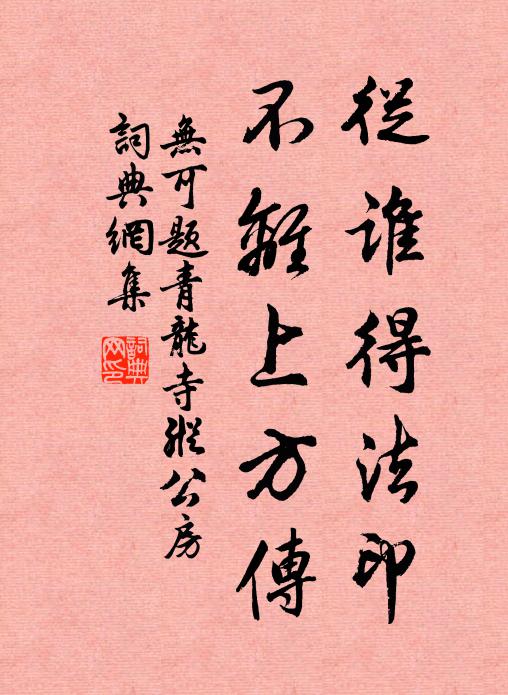 從誰得法印
不離上方傳
無可題青龍寺縱公房
詞典網集
詞典網印